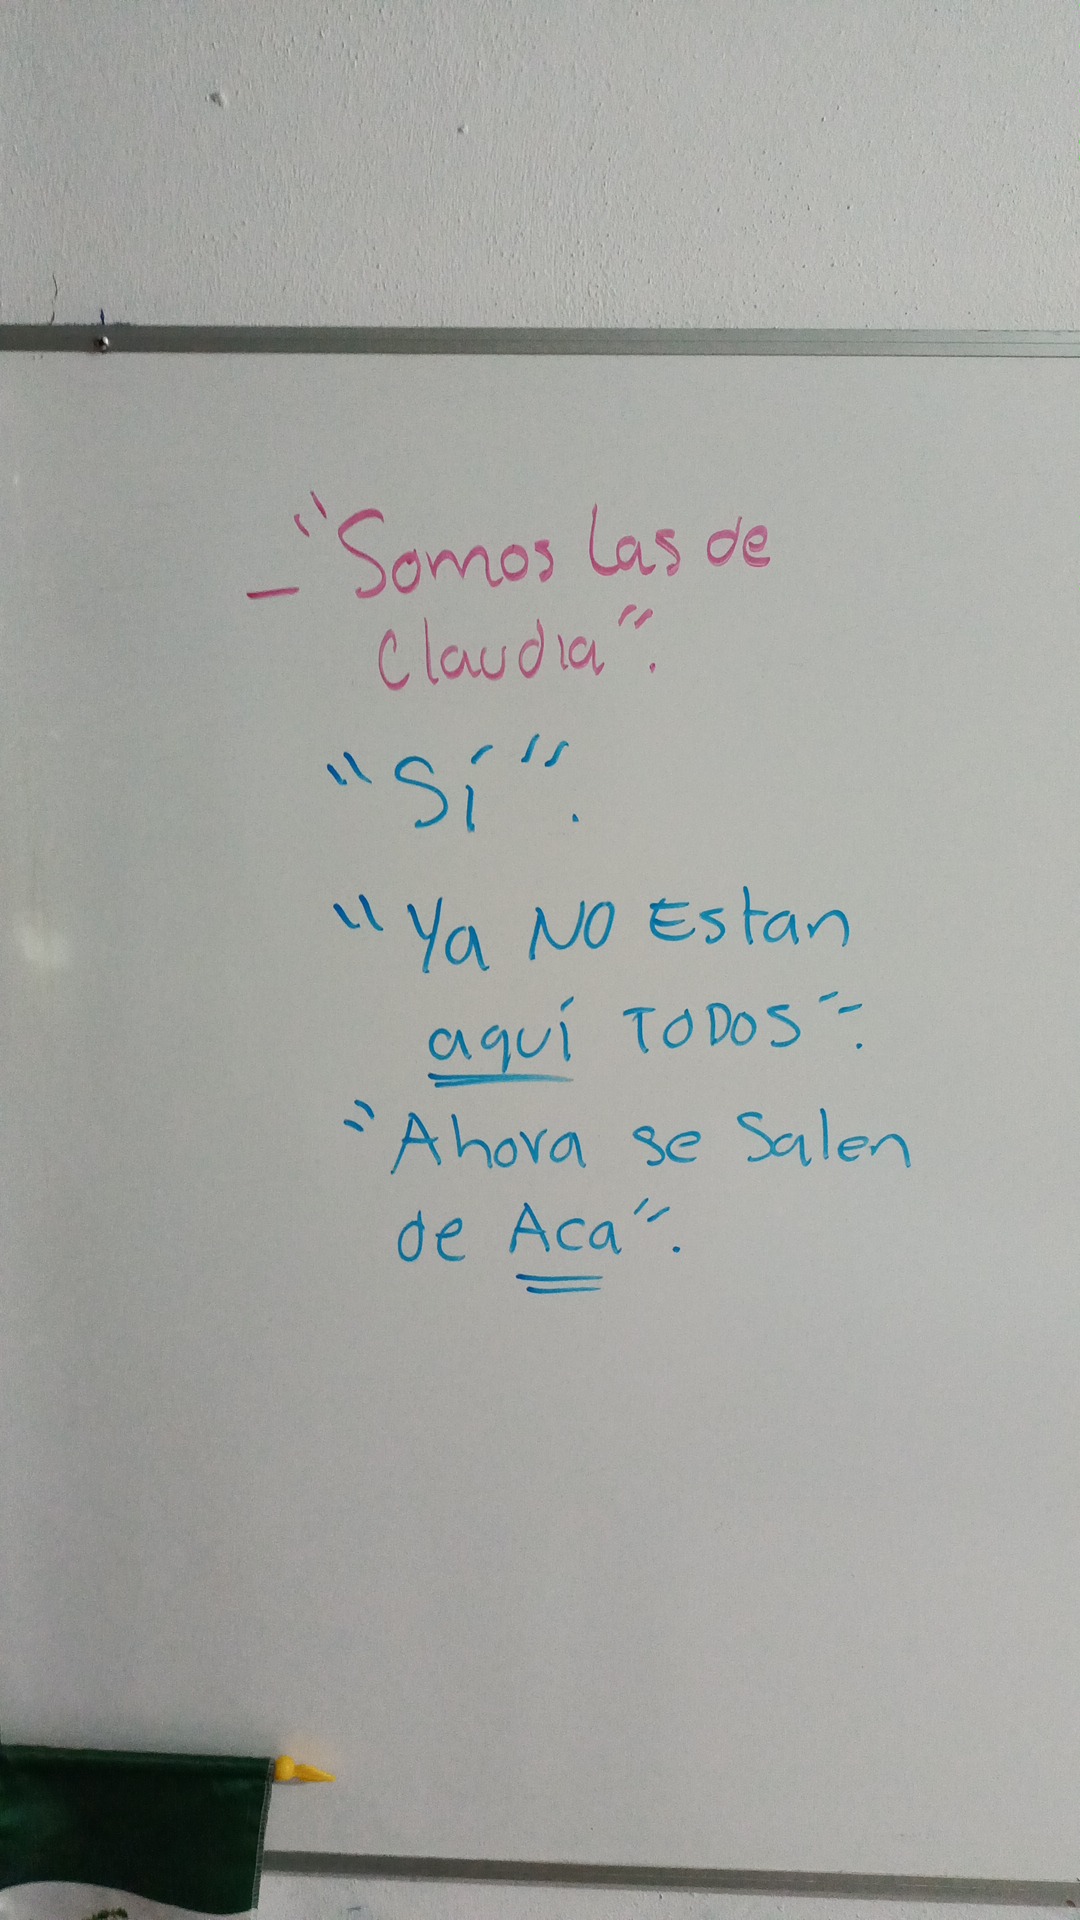 — "Somos las de
Claudia".
"Sí".
"Ya NO Estan
aquí TODOS".
"Ahora se salen
de Aca".